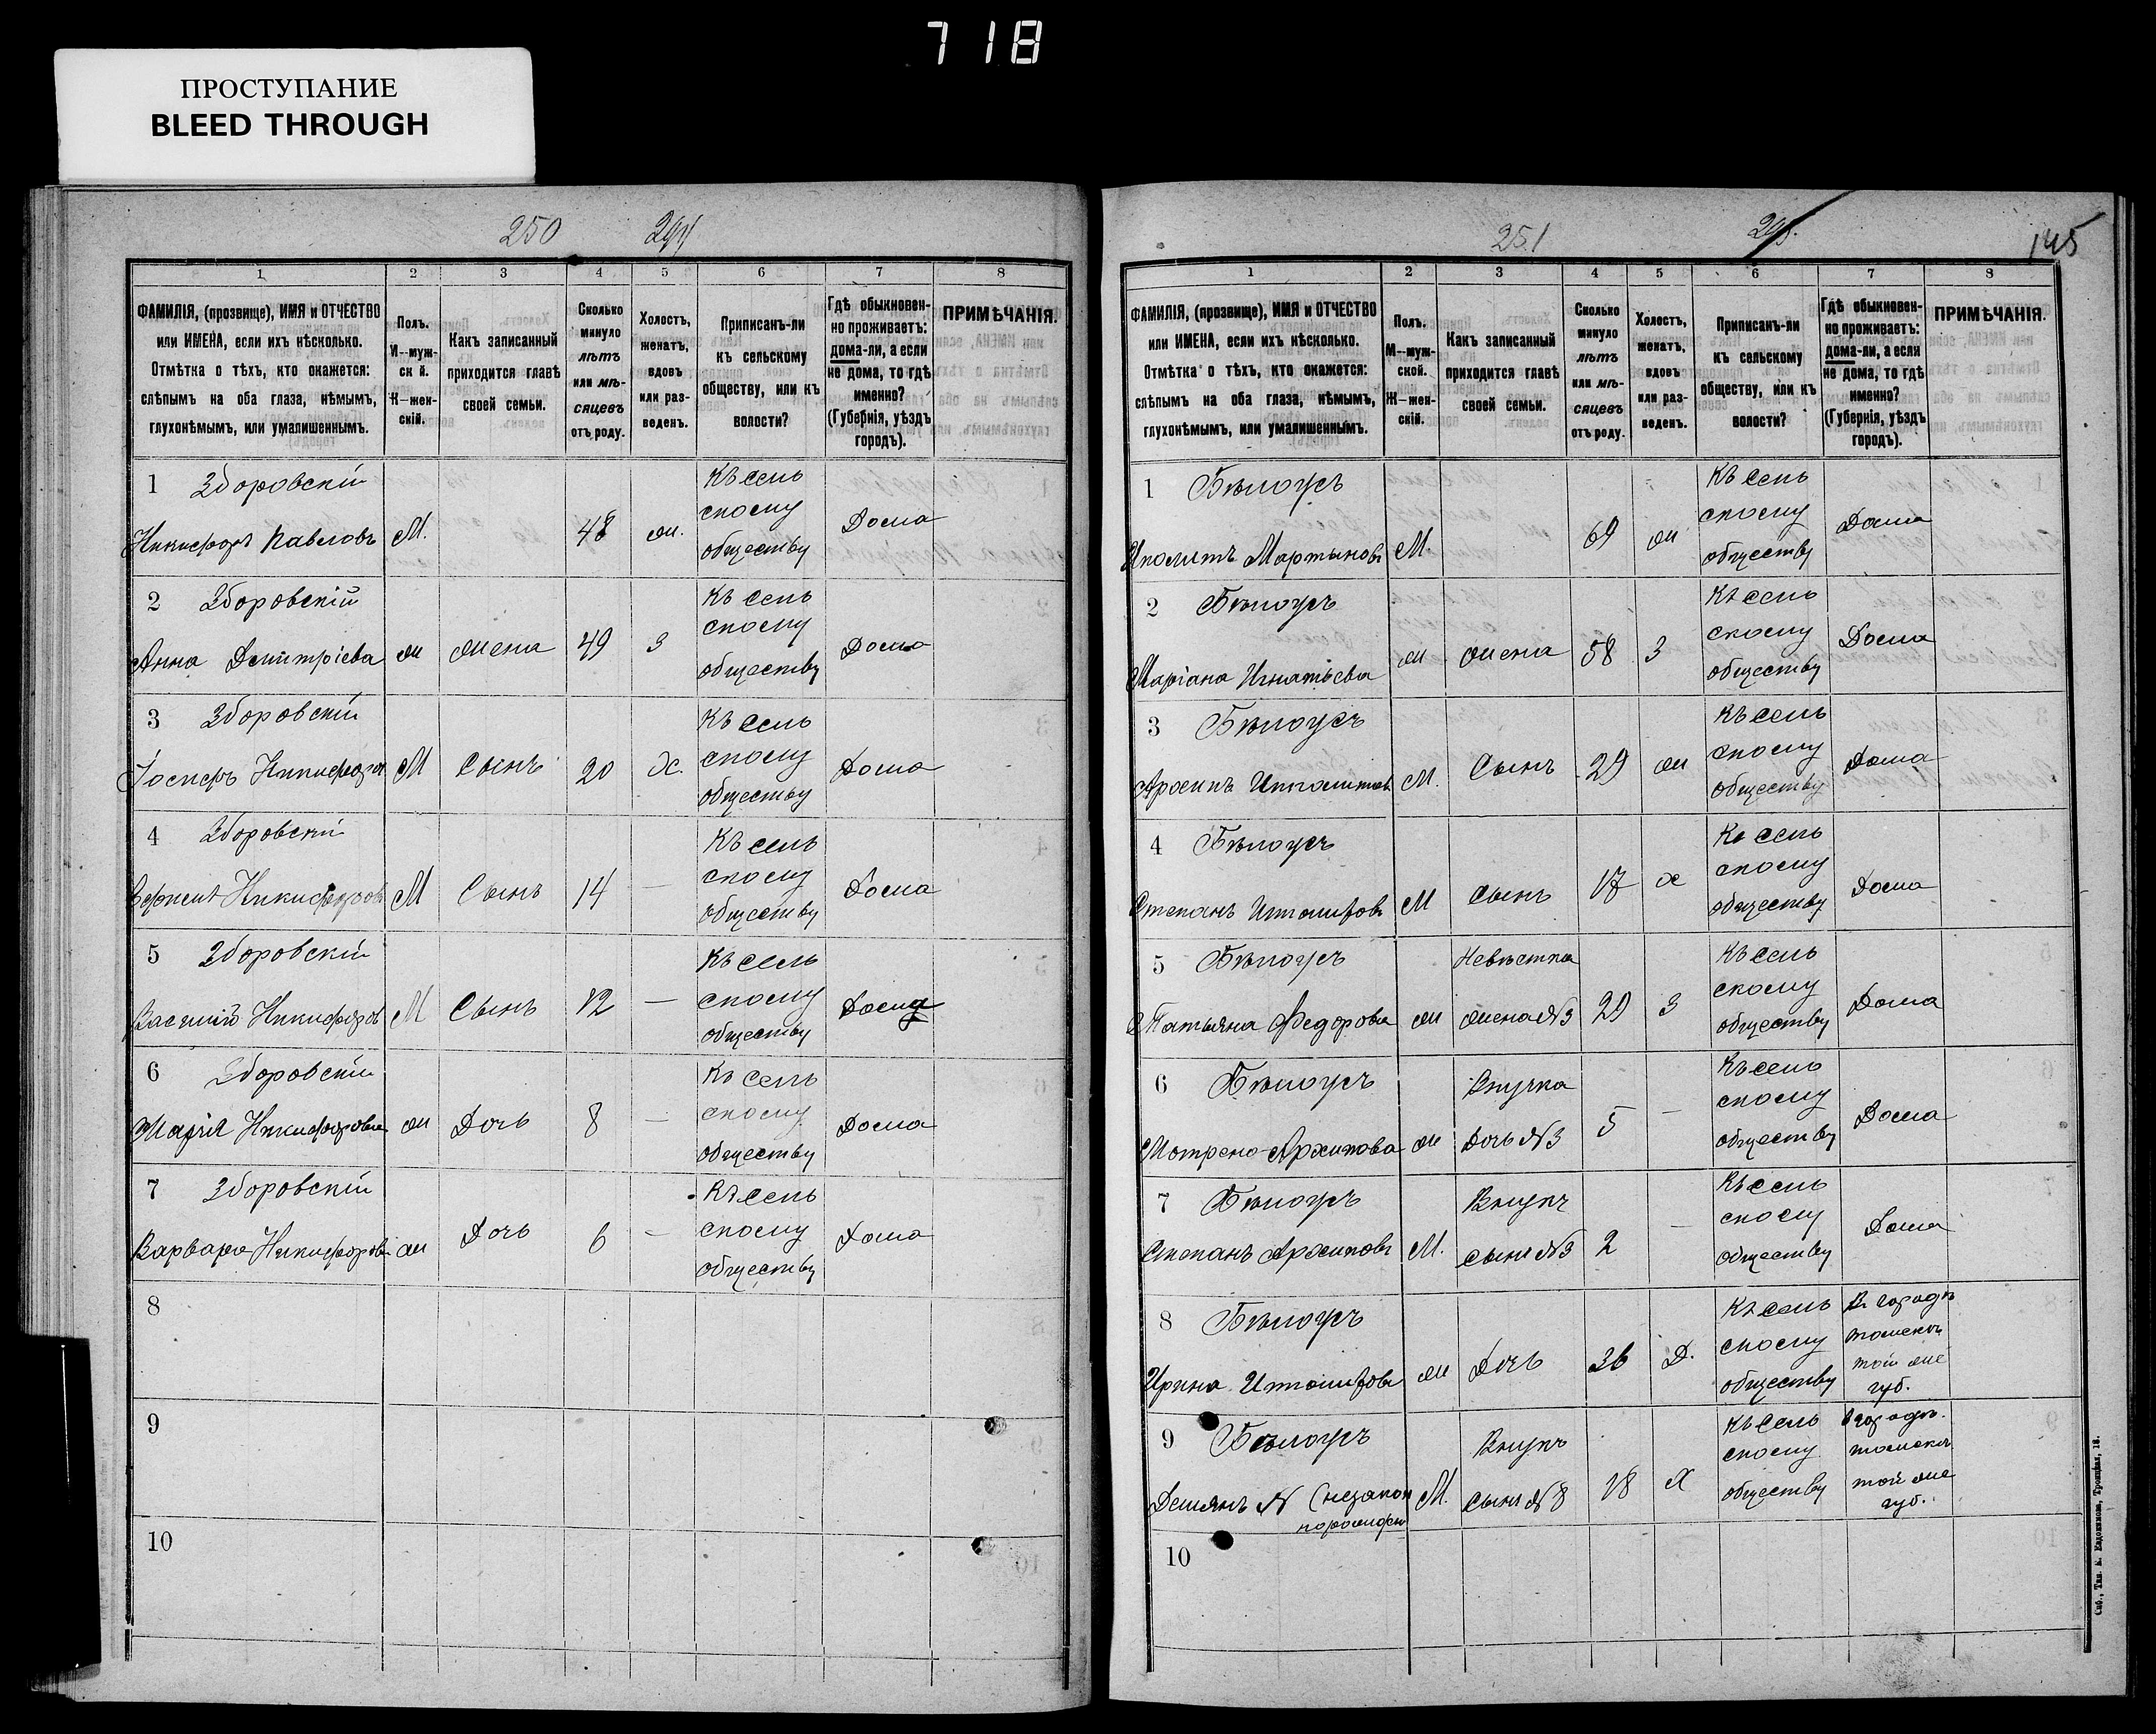 718
ПРОСТУПАНИЕ
BLEED THROUGH
250
1 2 3 4 5 6 7 8
ФАМИЛІЯ, (прозвище), ИМЯ и ОТЧЕСТВО
или ИМЕНА, если ихъ нѣсколько.
Отмѣтка о тѣхъ, кто окажется:
слѣпымъ на оба глаза, нѣмымъ,
глухонѣмымъ, или умалишеннымъ.
Полъ.
М—муж-
ск й.
Ж—жен-
скій.
Какъ записанный
приходится главѣ
своей семьи.
Сколько
минуло
лѣтъ
или мѣ-
сяцевъ
отъ роду.
Холостъ,
женатъ,
вдовъ
или раз-
веденъ.
Приписанъ-ли
къ сельскому
обществу, или къ
волости?
Гдѣ обыкновен-
но проживаетъ:
дома-ли, а если
не дома, то гдѣ
именно?
(Губернія, уѣздъ
городъ).
ПРИМѢЧАНІЯ.
1 Зборовскій
Никифоръ Павловъ М. 48 ж. Къ сель
скому
обществу Дома
2 Зборовскій
Анна Дмитріева ж жена 49 З Къ сель
скому
обществу Дома
3 Зборовскій
Іосифъ Никифоров М Сынъ 20 Х. Къ сель
скому
обществу Дома
4 Зборовскій
Никифоровъ М Сынъ 14 — Къ сель
скому
обществу Дома
5 Зборовскій
Василій Никифоров М Сынъ 12 — Къ сель
скому
обществу Дома
6 Зборовскій
Марія Никифоровна ж Дочь 8 — Къ сель
скому
обществу Дома
7 Зборовскій
Варвара Никифоров ж Дочь 6 — Къ сель
скому
обществу Дома
8
9
10
251
145
1 2 3 4 5 6 7 8
ФАМИЛІЯ, (прозвище), ИМЯ и ОТЧЕСТВО
или ИМЕНА, если ихъ нѣсколько.
Отмѣтка о тѣхъ, кто окажется:
слѣпымъ на оба глаза, нѣмымъ,
глухонѣмымъ, или умалишеннымъ.
Полъ.
М—муж-
ской.
Ж—жен-
скій.
Какъ записанный
приходится главѣ
своей семьи.
Сколько
минуло
лѣтъ
или мѣ-
сяцевъ
отъ роду.
Холостъ,
женатъ,
вдовъ
или раз-
веденъ.
Приписанъ-ли
къ сельскому
обществу, или къ
волости?
Гдѣ обыкновен-
но проживаетъ:
дома-ли, а если
не дома, то гдѣ
именно?
(Губернія, уѣздъ
городъ).
ПРИМѢЧАНІЯ.
1 Бѣлоусъ
Иполитъ Мартыновъ М. 69 ж Къ сель
скому
обществу Дома
2 Бѣлоусъ
Маріана Игнатьева ж жена 58 З Къ сель
скому
обществу Дома
3 Бѣлоусъ
Архипъ Ипполитов М. Сынъ 29 ж Къ сель
скому
обществу Дома
4 Бѣлоусъ
Степанъ Иполитовъ М Сынъ 17 х Къ сель
скому
обществу Дома
5 Бѣлоусъ Невѣстка
Татьяна Федорова ж жена №3 29 З Къ сель
скому
обществу Дома
6 Бѣлоусъ Внучка
Мотрена Архипова ж Дочь №3 5 — Къ сель
скому
обществу Дома
7 Бѣлоусъ Внукъ
Степанъ Архиповъ М. сынъ №3 2 — Къ сель
скому
обществу Дома
8 Бѣлоусъ
Ирина Иполитова ж Дочь 36 Д. Къ сель
скому
обществу В городѣ
томскъ
той же
губ.
9 Бѣлоусъ Внукъ
Демянъ N (незакон
норожден М. сынъ №8 18 Х Къ сель
скому
обществу В городѣ
томскъ
той же
губ.
10
Спб., Тип. В. Евдокимова, Троицкая, 18.